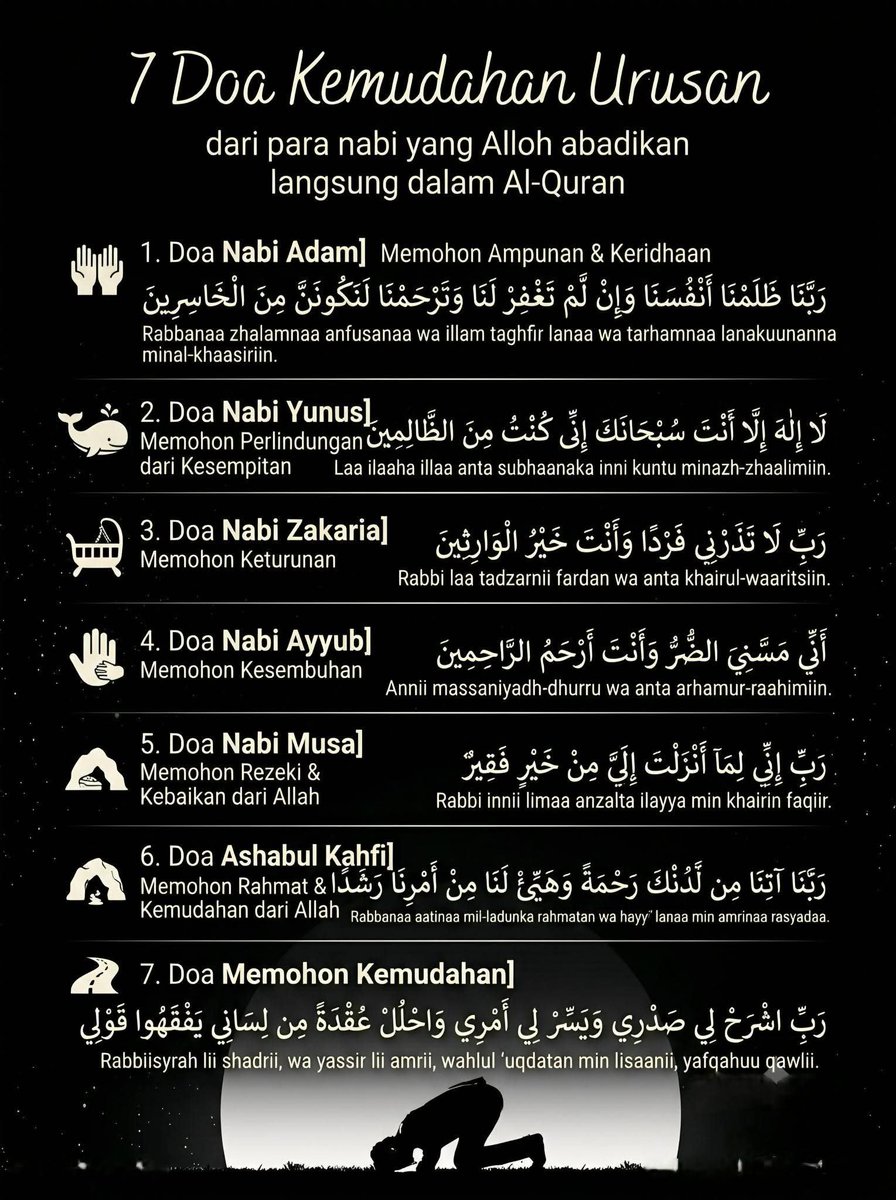 7 Doa Kemudahan Urusan
dari para nabi yang Alloh abadikan
langsung dalam Al-Quran
1. Doa Nabi Adam] Memohon Ampunan & Keridhaan
رَبَّنَا ظَلَمْنَا أَنْفُسَنَا وَإِنْ لَّمْ تَغْفِرْ لَنَا وَتَرْحَمْنَا لَنَكُونَنَّ مِنَ الْخَاسِرِينَ
Rabbanaa zhalamnaa anfusanaa wa illam taghfir lanaa wa tarhamnaa lanakuunanna
minal-khaasiriin.
2. Doa Nabi Yunus]
Memohon Perlindungan
dari Kesempitan
لَا إِلٰهَ إِلَّا أَنْتَ سُبْحَانَكَ إِنِّى كُنْتُ مِنَ الظَّالِمِينَ
Laa ilaaha illaa anta subhaanaka inni kuntu minazh-zhaalimiin.
3. Doa Nabi Zakaria]
Memohon Keturunan
رَبِّ لَا تَذَرْنِي فَرْدًا وَأَنْتَ خَيْرُ الْوَارِثِينَ
Rabbi laa tadzarnii fardan wa anta khairul-waaritsiin.
4. Doa Nabi Ayyub]
Memohon Kesembuhan
أَنِّي مَسَّنِيَ الضُّرُّ وَأَنْتَ أَرْحَمُ الرَّاحِمِينَ
Annii massaniyadh-dhurru wa anta arhamur-raahimiin.
5. Doa Nabi Musa]
Memohon Rezeki &
Kebaikan dari Allah
رَبِّ إِنِّي لِمَآ أَنْزَلْتَ إِلَيَّ مِنْ خَيْرٍ فَقِيرٌ
Rabbi innii limaa anzalta ilayya min khairin faqiir.
6. Doa Ashabul Kahfi]
Memohon Rahmat &
Kemudahan dari Allah
رَبَّنَا آتِنَا مِن لَّدُنْكَ رَحْمَةً وَهَيِّئْ لَنَا مِنْ أَمْرِنَا رَشَدًا
Rabbanaa aatinaa mil-ladunka rahmatan wa hayy” lanaa min amrinaa rasyadaa.
7. Doa Memohon Kemudahan]
رَبِّ اشْرَحْ لِي صَدْرِي وَيَسِّرْ لِي أَمْرِي وَاحْلُلْ عُقْدَةً مِن لِسَانِي يَفْقَهُوا قَوْلِي
Rabbiisyrah lii shadrii, wa yassir lii amrii, wahlul ‘uqdatan min lisaanii, yafqahuu qawlii.